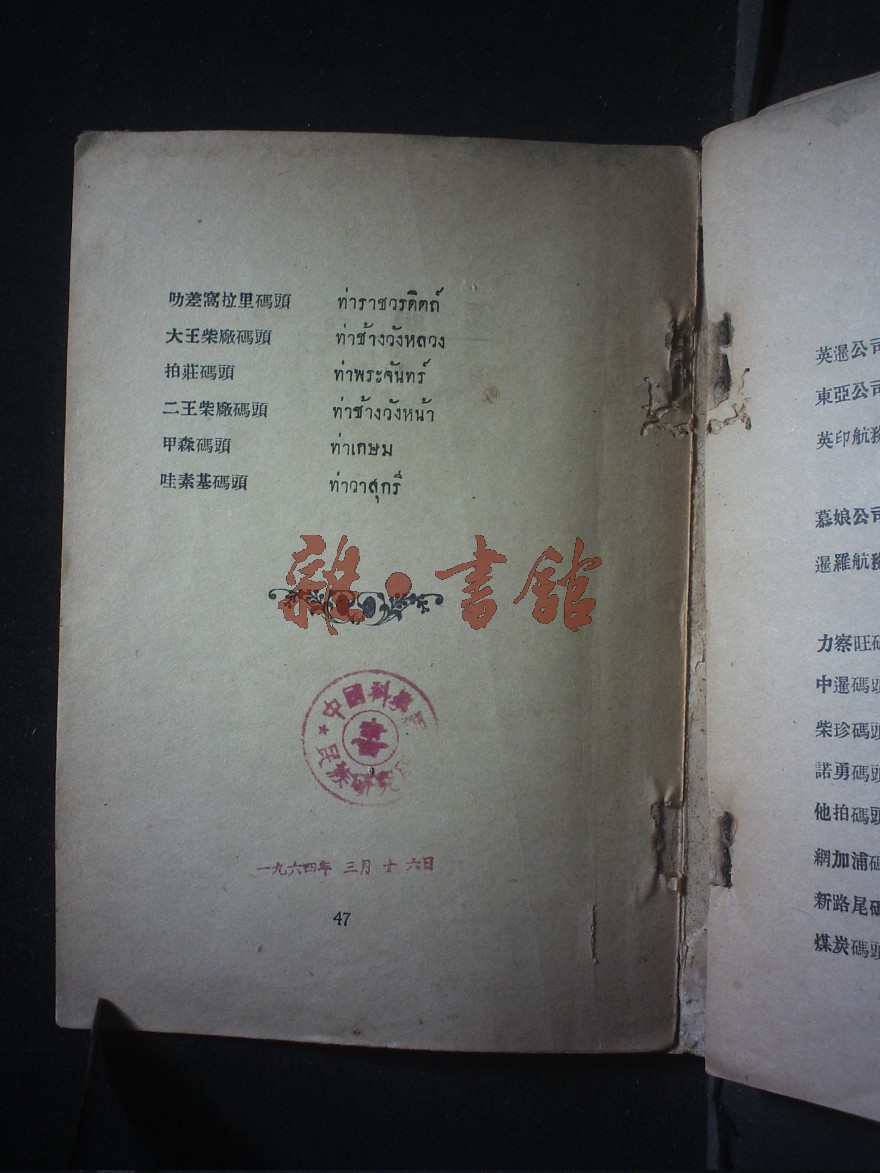 叻差窩拉里碼頭 ท่าราชวรดิตถ์
大王柴廠碼頭 ท่าช้างวังหลวง
拍莊碼頭 ท่าพระจันทร์
二王柴廠碼頭 ท่าช้างวังหน้า
甲森碼頭 ท่าเกษม
哇素基碼頭 ท่าวาสุกรี
雜·書館
中國科學
民族研究
一九六四年 三月 十六日
47
英暹公司
東亞公司
英印航務
慕娘公司
暹羅航務
力察旺碼
中暹碼頭
柴珍碼頭
諾勇碼頭
他拍碼頭
網加浦碼
新路尾碼
煤炭碼頭